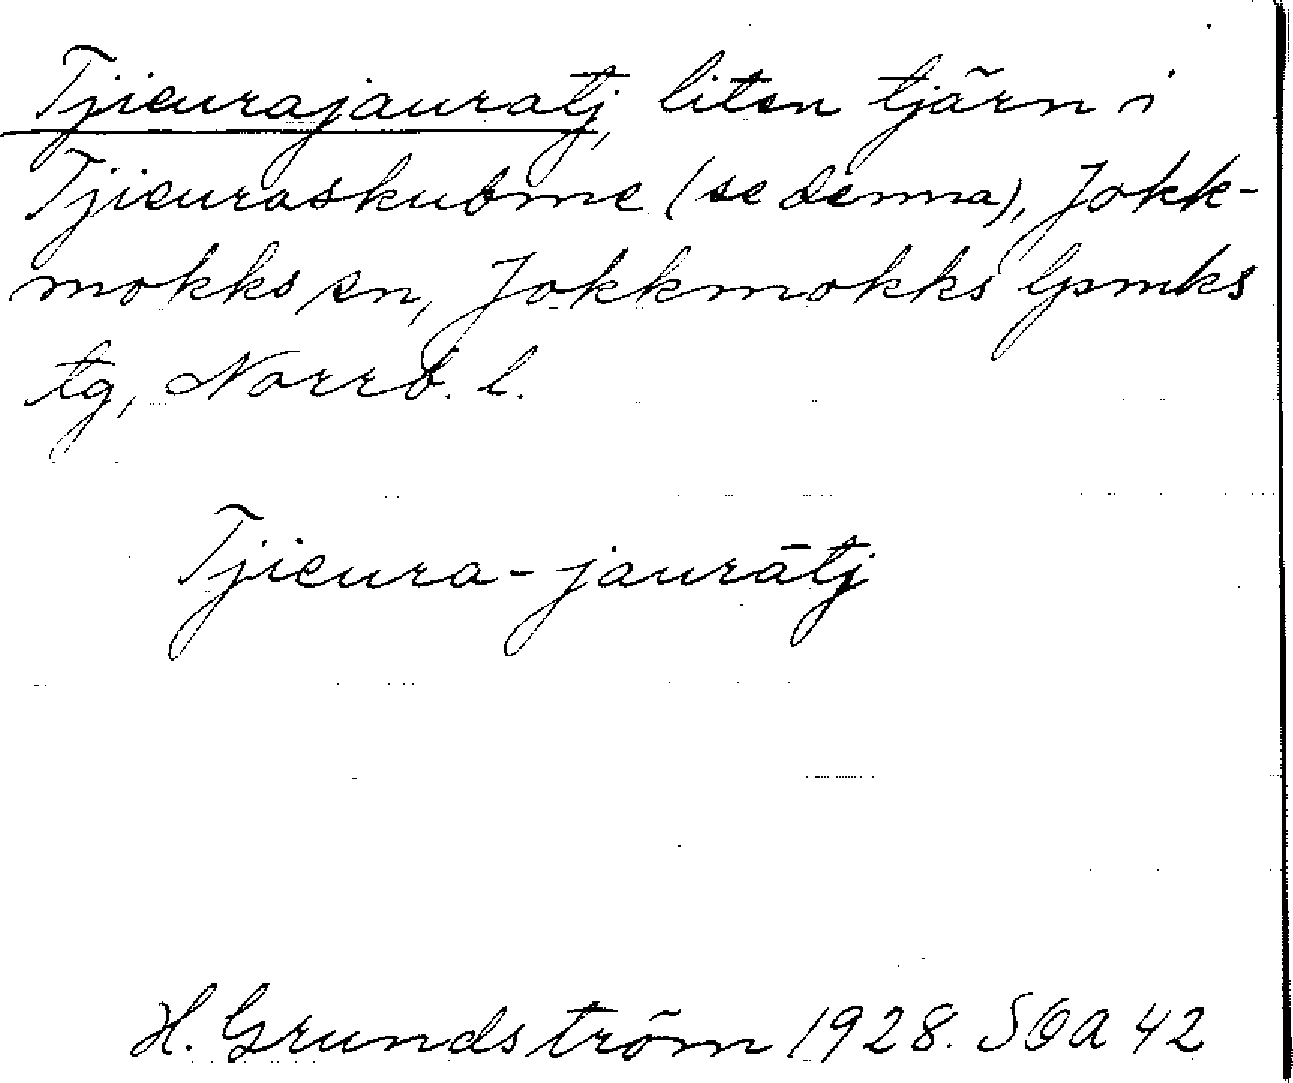 Tjieurajauratj, liten tjärn i
Tjieuraskubme (se denna), Jokk-
mokks sn, Jokkmokks lpmks
tg, Norrb. l.
Tjieura-jaurātj
H. Grundström 1928. SOA 42